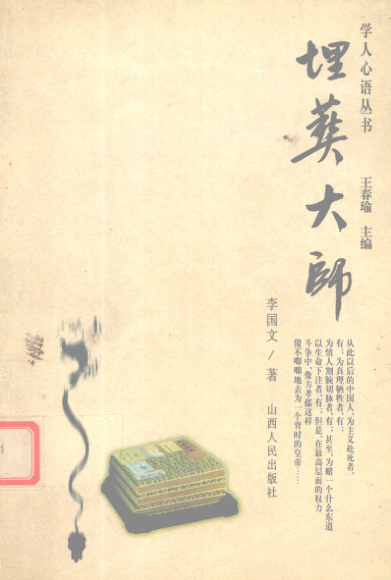 学人心语丛书
王春瑜 主编
埋葬大師
李国文/著
山西人民出版社
从此以后的中国人，为主义赴死者，
有；为真理牺牲者，有；
为情人割腕切脉者，有；甚至，为赌一个什么东道
以生命下注者，有；但是，在最高层面的权力
斗争中，像方孝孺这样
傻不唧唧地去为一个背时的皇帝……
1